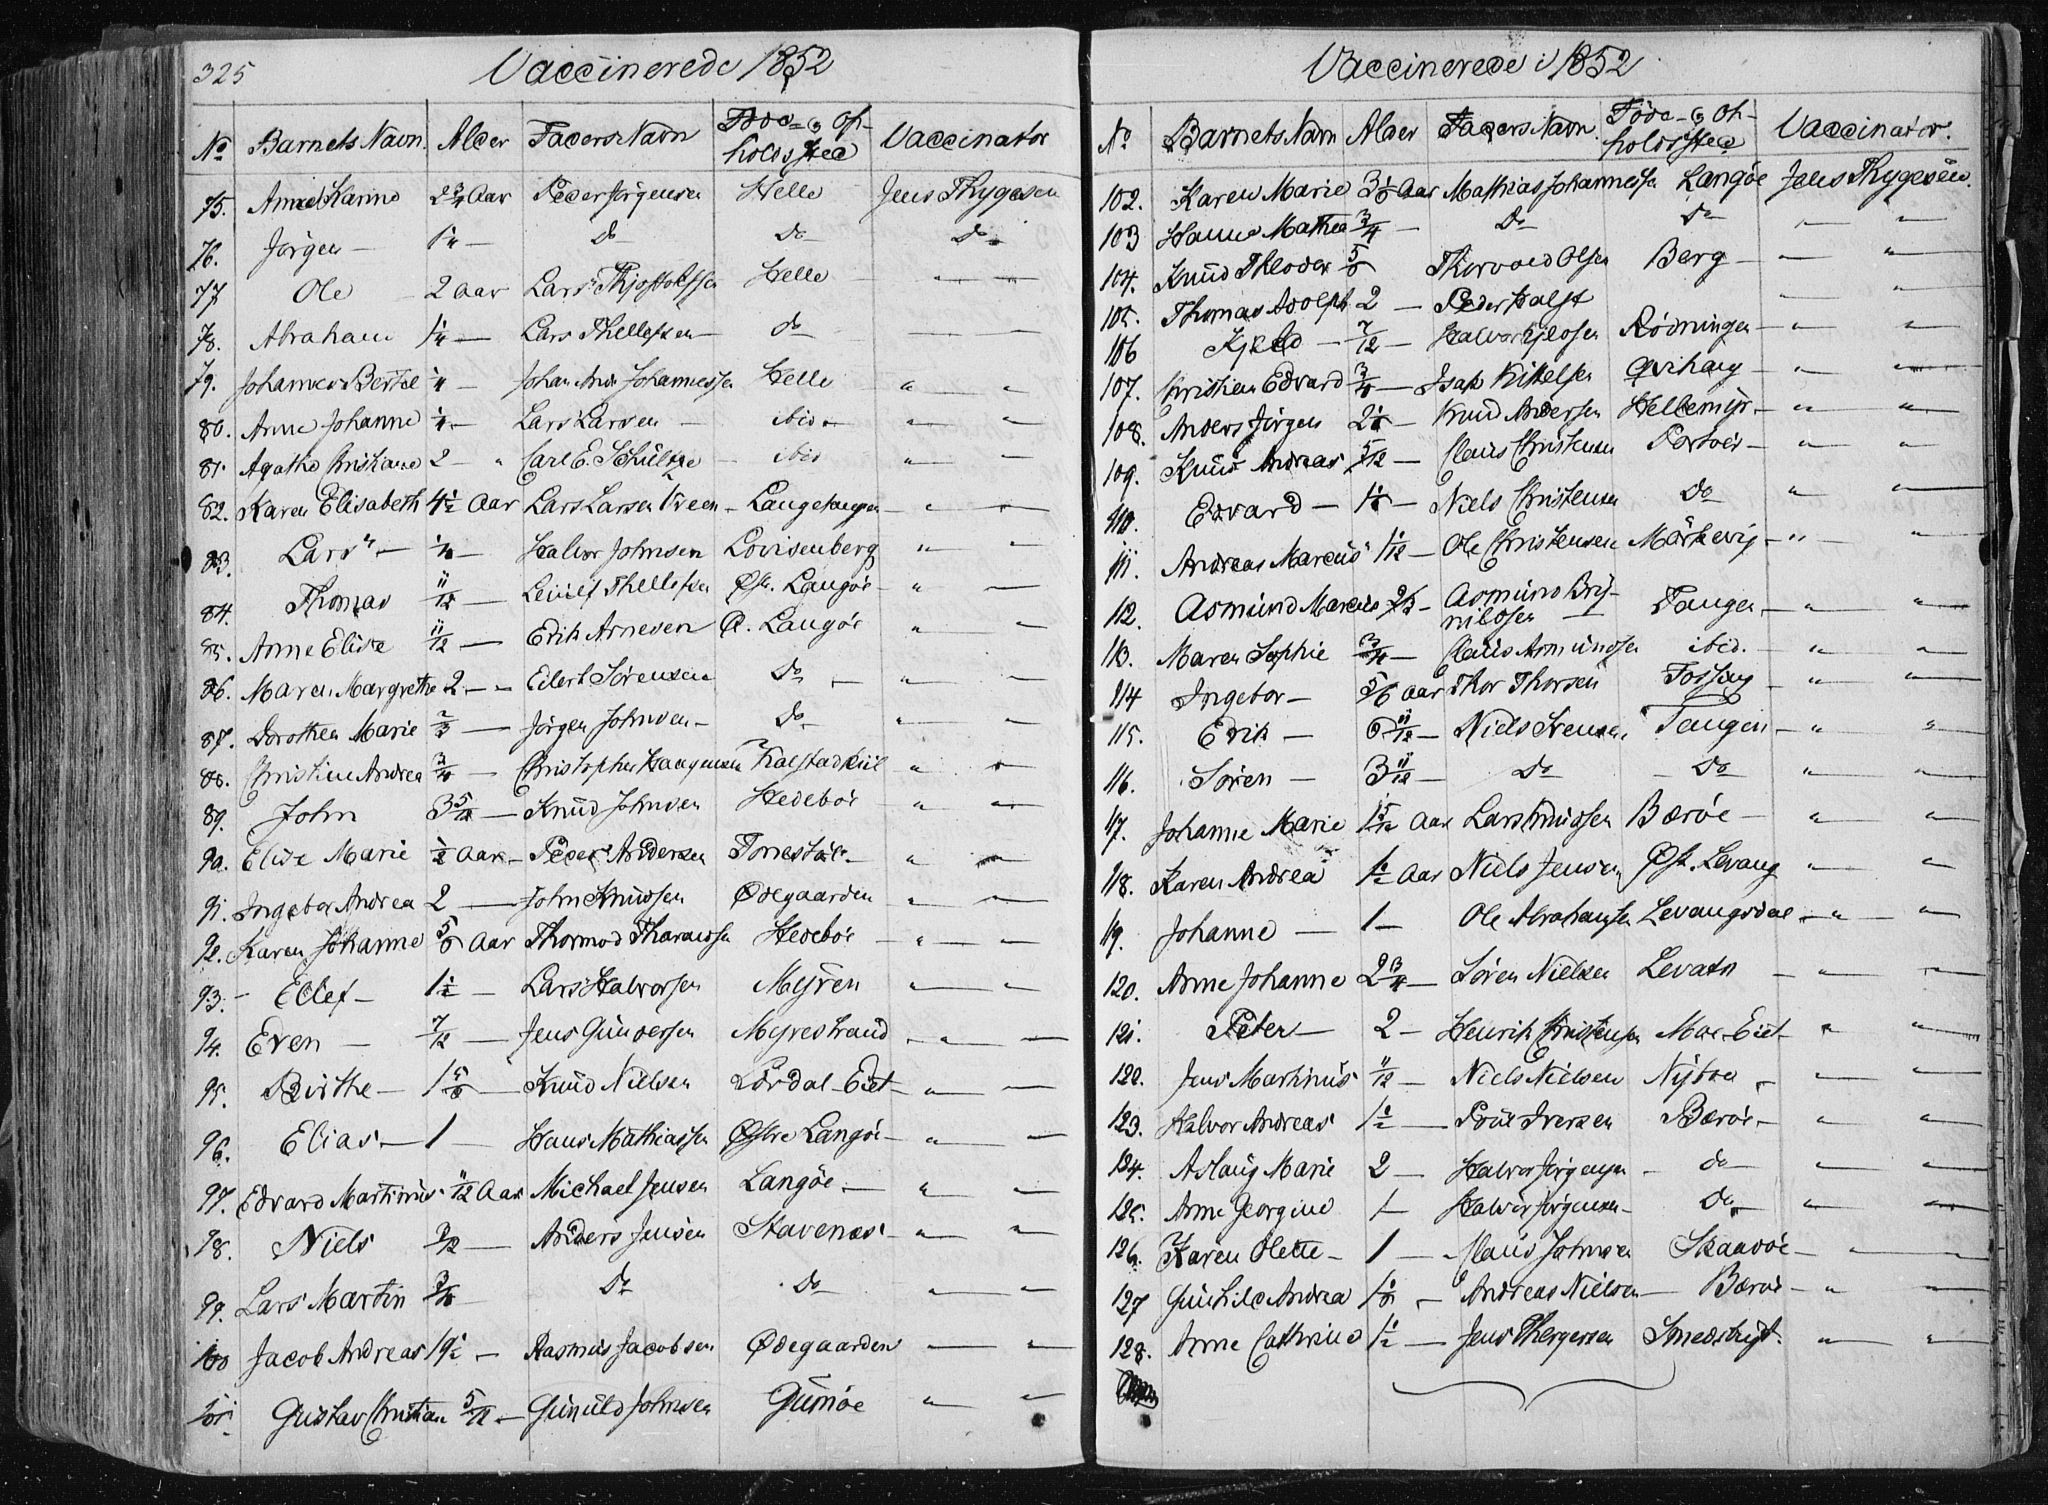 325 Vaccinerede 1852
No Barnets Navn. Alder Faders Navn Føde- og Op-
holdssted Vaccinator
75. Karine 2 3/4 Aar Peder Jørgensen Helle Jens Thygesen
76. Jørgen – – Do Do Do
77 Ole – 2 Aar Lars Thjostolfsen Helle " –
78. Abraham – Lars Thellefsen – do – –
79. Johannes Bertel – Johan Johannessen Helle " "
80. Anne Johanne – Lars Larsen – ibid. " "
81. Agathe Christiane 2 – " Carl E. Schültze – ibid " –
82. Karen Elisabeth 4 1/2 Aar Lars Larsen – Langetangen – " –
83. Lars – – Halvor Johnsen Lovisenberg " –
84. Thomas 11/12 – Thellefsen Østr. Langøe – " –
85. Anne Elise 11/12 – Erik Arnesen Ø. Langøe " –
86. Maren Margrethe 2 – " Eilert Sørensen Do – " –
87. Dorothea Marie 2/3 – Jørgen Johnsen – Do " –
88. Christine Andrea 3/4 – Christopher Kaalstadkiil " "
89. John 3 5/12 – Knud Johnsen Hedebøe " –
90. Elise Marie 1/2 Aar – Peder Andersen " –
91. Ingebor Andrea 2 – John Knudsen Ødegaarden " –
92. Karen Johanne 5/6 Aar Thormod Hedebøe – " –
93. – Ellef – 1 1/2 – Lars Halvorsen Myren " –
94. Even – 7/12 – Jens Gundersen Myrestrand – " –
95. Birthe – 1 5/6 – Knud Nielsen Lördal-Eiet – " –
96. Elias – 1 – Hans Mathiassen Østre Langøe – " –
97. Edvard Martinus 11/12 Aar Michael Jensen Langøe – " –
98. Niels – Anders Jensen Stavenæs " –
99. Lars Martin 3/4 Do Do " –
100 Jacob Andreas – Rasmus Jacobsen Ødegaarden – –
101. Gustav Christian 5/12 – Gunuld Johnsen Gumøe " –
Vaccinerede i 1852
No Barnets Navn Alder Faders Navn. Føde- og Op-
holdssted Vaccinator.
102. Karen Marie Aar Mathias Johannessen Langøe Jens Thygesen.
103 Hanne Mathea 3/4 – Do Do " "
104. Knud Theodor 5/6 Thorvald Olsen Berg – " "
105. Thomas Adolph 2 – Peder Halst – " "
106 Kjeld – 7/12 – Halvor Kjeldsen Rødningen – " "
107. Christian Edvard 3/4 – Isak Kittelsen " –
108. Anders Jørgen – Knud Andersen Hellemyr – " "
109. Knud Andreas 5/12 – Claus Christensen " –
110. Edvard – – Niels Christensen Do " –
111. Andreas Marcus 1 1/12 – Ole Christensen Mörkevig – " "
112. Asmund Marcus 2/3 – Asmund Bry-
nildsen – Tangen – " "
113. Maren Sophie 3/4 – Claus Asmundsen ibid. – " –
114 Ingebor – 5/6 Aar Thor Thorsen Fossing – " –
115. Erik – 6 11/12 – Niels Svensen Tangen – " "
116. Søren – 3 11/12 – Do – Do " "
117. Johanne Marie 1 5/12 Aar Lars Knudsen Bærøe – " –
118. Karen Andrea 1 1/2 Aar Niels Jensen Øst. Levang " –
119. Johanne – 1 – Ole Abrahamsen Levangsdal – " –
120. Anne Johanne 2 3/4 – Søren Nielsen – " –
121. Peter – 2 – Henrik Christensen Moe-Eiet – " –
122. Jens Martinus 11/12 – Niels Nielsen – " –
123. Halvor Andreas 1 1/2 – Poul Iversen Bærøe – " –
124. Aslaug Marie 2 – Halvor Jørgensen – do – " –
125. Anne Georgine 1 – Halvor Jørgensen – Do " –
126. Karen Olette – 1 – Claus Johnsen Skaadøe – " –
127 Gunhild Andrea – Andreas Nielsen – Bærøe – " –
128. Anne Cathrine 1 1/2 – Jens Thergersen " –